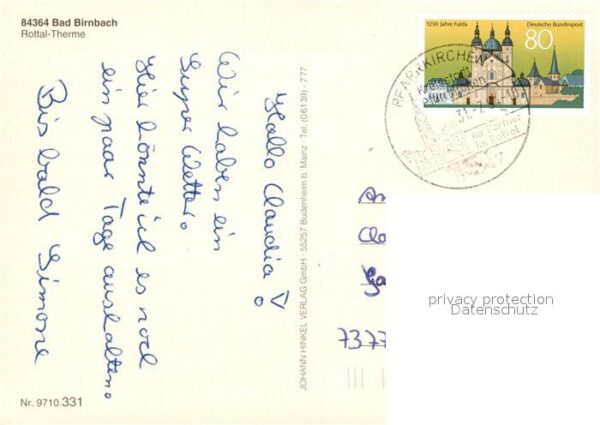 84364 Bad Birnbach
Rottal-Therme
Hallo Claudia!
Wir haben ein
Super Wetter.
Hier könnte ich es noch
ein paar Tage aushalten.
Bis bald Simone
Nr. 9710.331
JOHANN HINKEL VERLAG GmbH · 55257 Budenheim b. Mainz · Tel. (06139) - 777
1250 Jahre Fulda
Deutsche Bundespost
80
PFARRKIRCHEN
Kreisstadt
Ihr Partner
im Rottal
An
Cla
737
privacy protection
Datenschutz